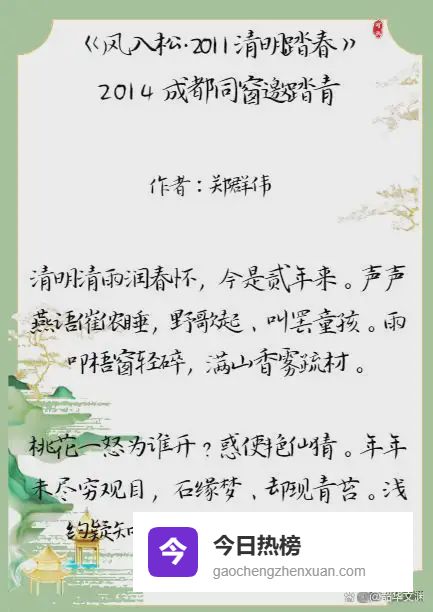 《风入松·2011清明踏春》
2014成都同窗邀踏青
作者：郑群伟
清明清雨润春怀，今是贰年来。声声
燕语催农睡，野歌起、叫罢童孩。雨
叩梧窗轻碎，满山香雾疏材。
桃花一怒为谁开？惑使艳仙猜。年年
未尽穷观目，石缘梦、却现青苔。浅
约疑知
今
今日热榜
gaochengzhenxuan.com